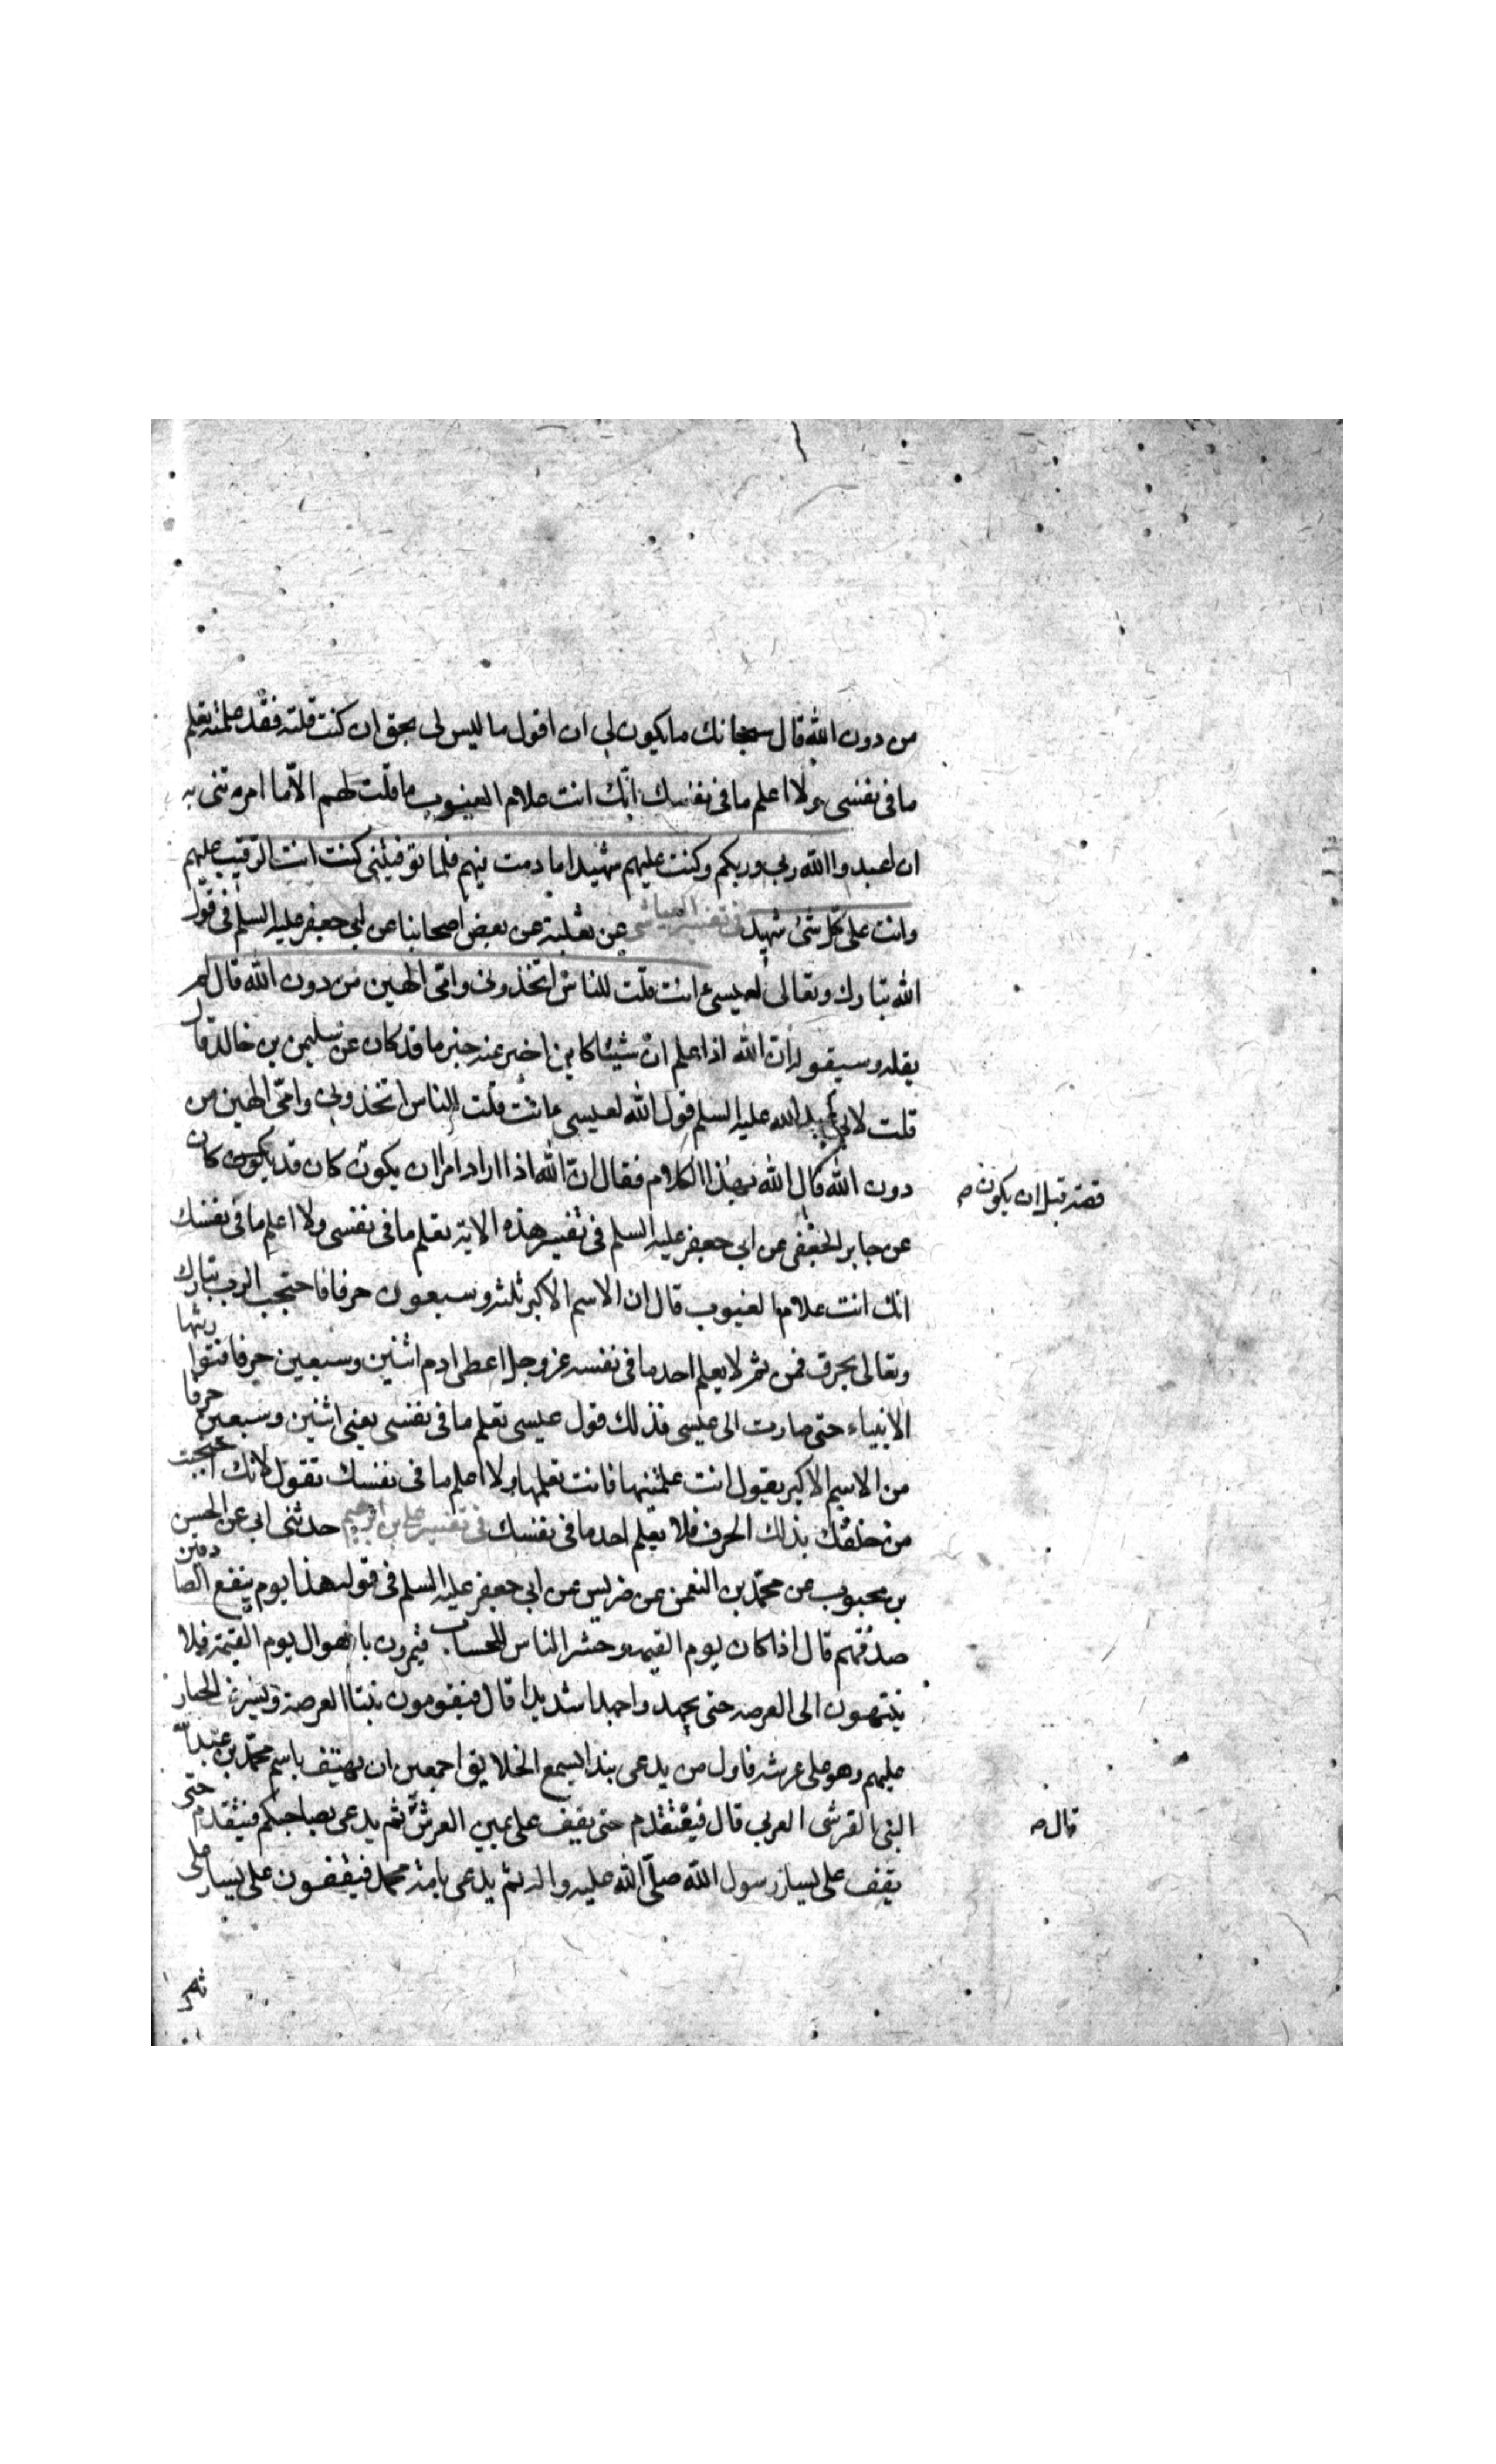 من دون الله قال سبحانك ما يكون لي ان اقول ما ليس لى بحق ان كنت قلته فقد علمته تعلم
ما فى نفسى ولا اعلم ما فى نفسك انّك انت علام الغيوب ما قلت لهم الّا ما امرتنى به
ان اعبدوا الله ربى وربكم وكنت عليهم شهيدا ما دمت فيهم فلما توفيتنى كنت انت الرّقيب عليهم
وانت على كل شئ شهيد فى تفسير العياشى عن ثعلبة عن بعض اصحابنا عن ابى جعفر عليه السلم فى قول
الله تبارك وتعالى لعيسى ءانت قلت للناس اتخذونى وامّى الهين من دون الله قال لم
يقله وسيقوله انّ الله اذا علم انّ شيئا كاين اخبر عنه خبر ما قد كان عن سليمن بن خالد قال
قلت لابى عبد الله عليه السلم قول الله لعيسى ءانت قلت للناس اتخذونى وامّى الهين من
دون الله قال الله بهذا الكلام فقال انّ الله اذا اراد امرا ان يكون كان قد يكون كان
قصّه قبل ان يكون ص
عن جابر الجعفى عن ابى جعفر عليه السلم فى تفسير هذه الاية تعلم ما فى نفسى ولا اعلم ما فى نفسك
انك انت علام الغيوب قال ان الاسم الاكبر ثلثه وسبعون حرفا فاحتجب الرب تبارك
وتعالى بحرف فمن ثم لا يعلم احد ما فى نفسه عز وجل اعطى ادم اثنين وسبعين حرفا فتوارثها
الانبياء حتى صارت الى عيسى فذلك قول عيسى تعلم ما فى نفسى يعنى اثنين وسبعين حرفا
من الاسم الاكبر يقول انت علمتنيها فانت تعلمها ولا اعلم ما فى نفسك تقول لانك احتجبت
من خلقك بذلك الحرف فلا يعلم احد ما فى نفسك فى تفسير على بن ابراهيم حدثنى ابى عن الحسن
بن محبوب عن محمّد بن النعمن عن ضريس عن ابى جعفر عليه السلم فى قوله هذا يوم ينفع الصادقين
صدقهم قال اذا كان يوم القيمة وحشر الناس للحساب فيمرون باهوال يوم القيمة فلا
ينتهون الى العرصه حتى يجهدوا جهدا شديدا قال فيقومون بفنا العرصة ويشرف الجبار
عليهم وهو على عرشه فاول من يدعى بندا يسمع الخلايق اجمعين ان يهتف باسم محمّد بن عبد الله
النبى القرشى العربى قال فيتقدم حتى يقف على يمين العرش ثم يدعى بصاحبكم فيتقدم حتى
قال ص
يقف على يسار رسول الله صلّى الله عليه واله ثم يدعى بامّة محمد فيقفون على يسار على
ثم